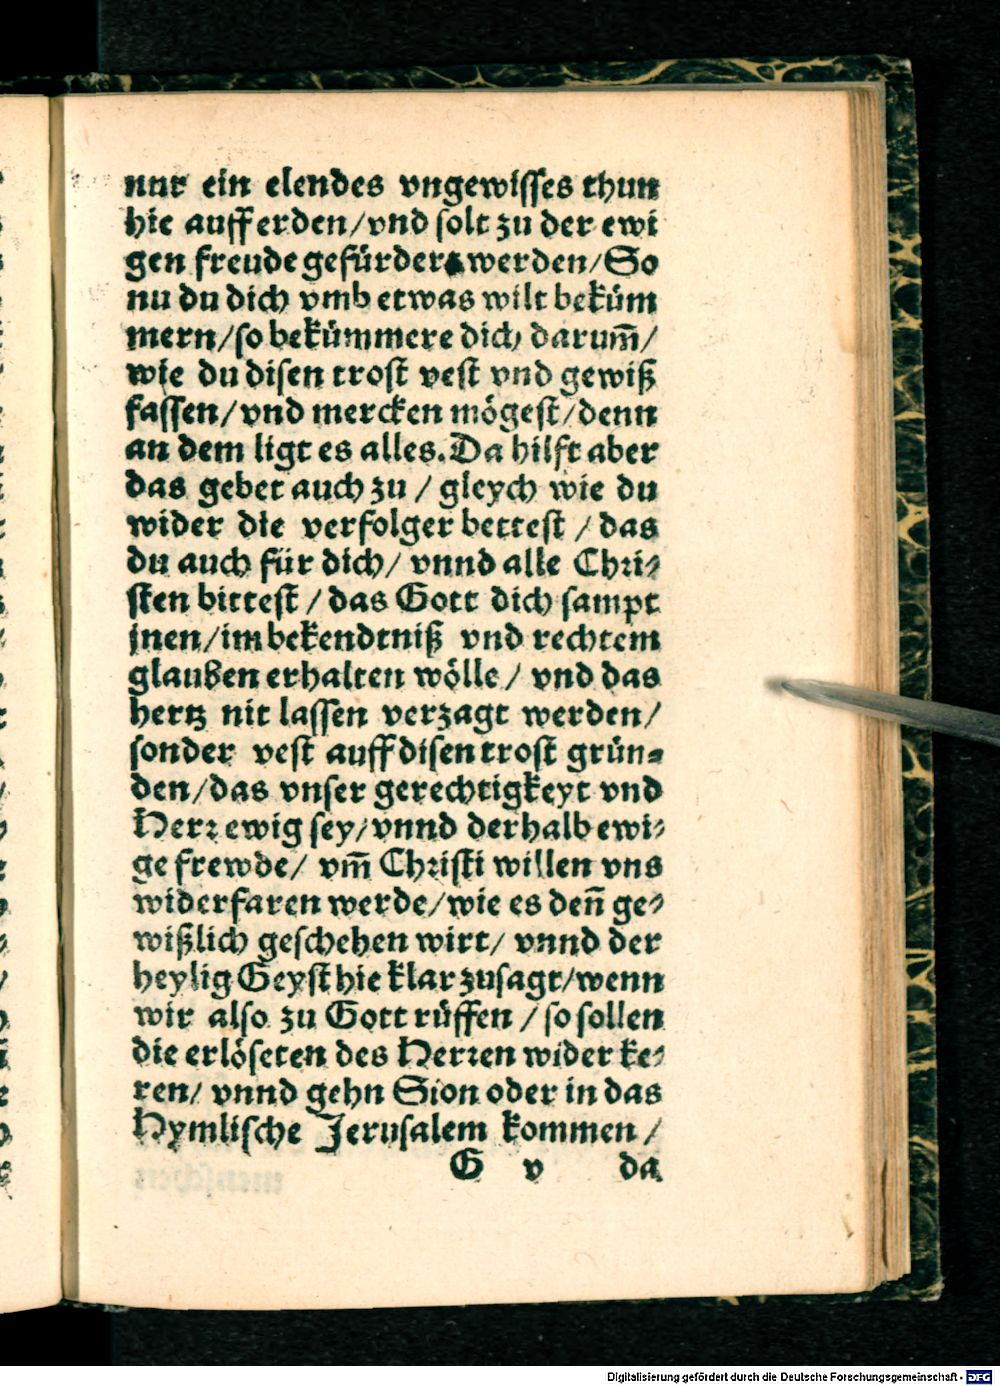 nur ein elendes vngewisses thun
hie auff erden/vnd solt zu der ewi
gen freude gefürdert werden/So
nu du dich vmb etwas wilt beküm
mern/so bekümmere dich darum̄/
wie du disen trost vest vnd gewiß
fassen/vnd mercken mögest/denn
an dem ligt es alles. Da hilft aber
das gebet auch zu / gleych wie du
wider die verfolger bettest / das
du auch für dich/ vnnd alle Chri⸗
sten bittest / das Gott dich sampt
jnen/im bekendtniß vnd rechtem
glauben erhalten wölle / vnd das
hertz nit lassen verzagt werden/
sonder vest auff disen trost grün⸗
den/das vnser gerechtigkeyt vnd
Herr ewig sey/vnnd derhalb ewi⸗
ge frewde/ vm̄ Christi willen vns
widerfaren werde/wie es den̄ ge⸗
wißlich geschehen wirt/ vnnd der
heylig Geyst hie klar zusagt/wenn
wir also zu Gott rüffen / so sollen
die erlöseten des Herren wider ke⸗
ren/ vnnd gehn Sion oder in das
Hymlische Jerusalem kommen /
G v da
Digitalisierung gefördert durch die Deutsche Forschungsgemeinschaft - DFG